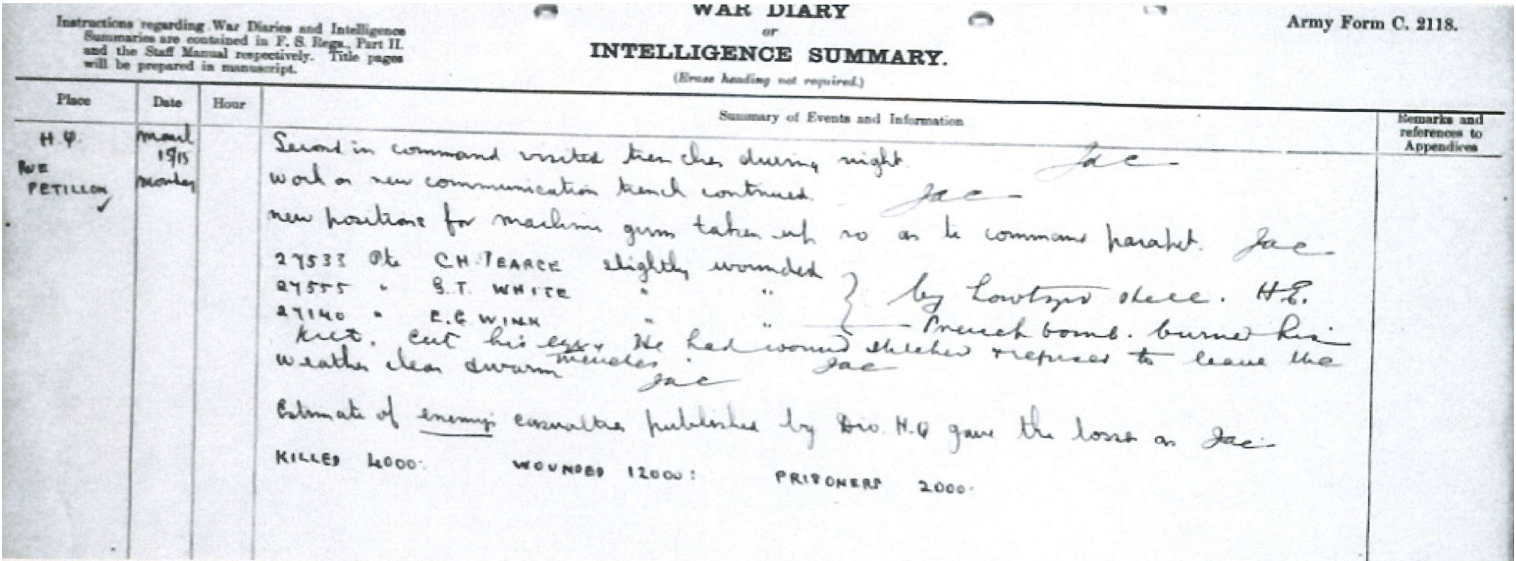 Instructions regarding War Diaries and Intelligence
Summaries are contained in F. S. Regs., Part II.
and the Staff Manual respectively. Title pages
will be prepared in manuscript.
WAR DIARY
or
INTELLIGENCE SUMMARY.
(Erase heading not required.)
Army Form C. 2118.
Place Date Hour Summary of Events and Information Remarks and references to Appendices
H.Q.
RUE
PETILLON
Monday
Second in command visited trenches during night. Jac
Work on new communication trench continued. Jac
New positions for machine guns taken up so as to command parapet. Jac
Pte C.H. PEARCE slightly wounded
27555 " S.T. WHITE " " by howtzer shell. H.E.
27140 " E.G WINN " " French bomb. burned his
kilt, cut his He had wound stitched & refuses to leave the
trenches. Jac
Weather clear & warm Jac
Estimate of enemy's casualties published by Div. H.Q gave the losses as Jac
KILLED 4000: WOUNDED 12000: PRISONERS 2000.